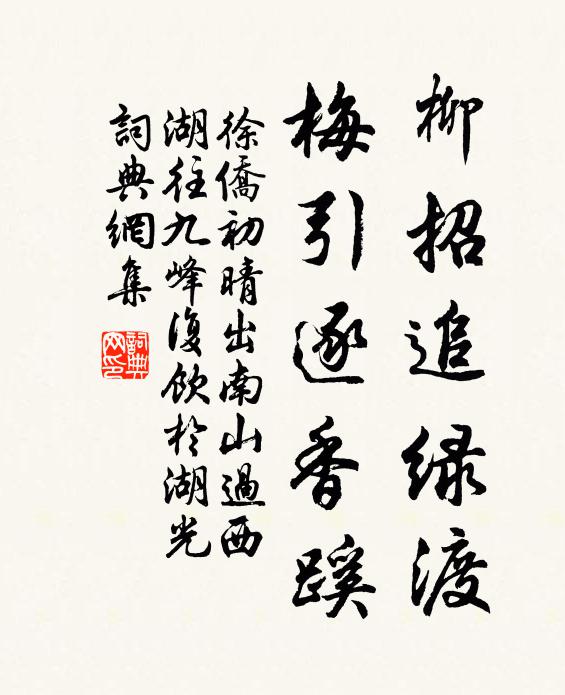 柳招追绿渡
梅引逐香蹊
徐僑初晴出南山過西
湖往九峰復飲於湖光
詞典網集
詞典網印